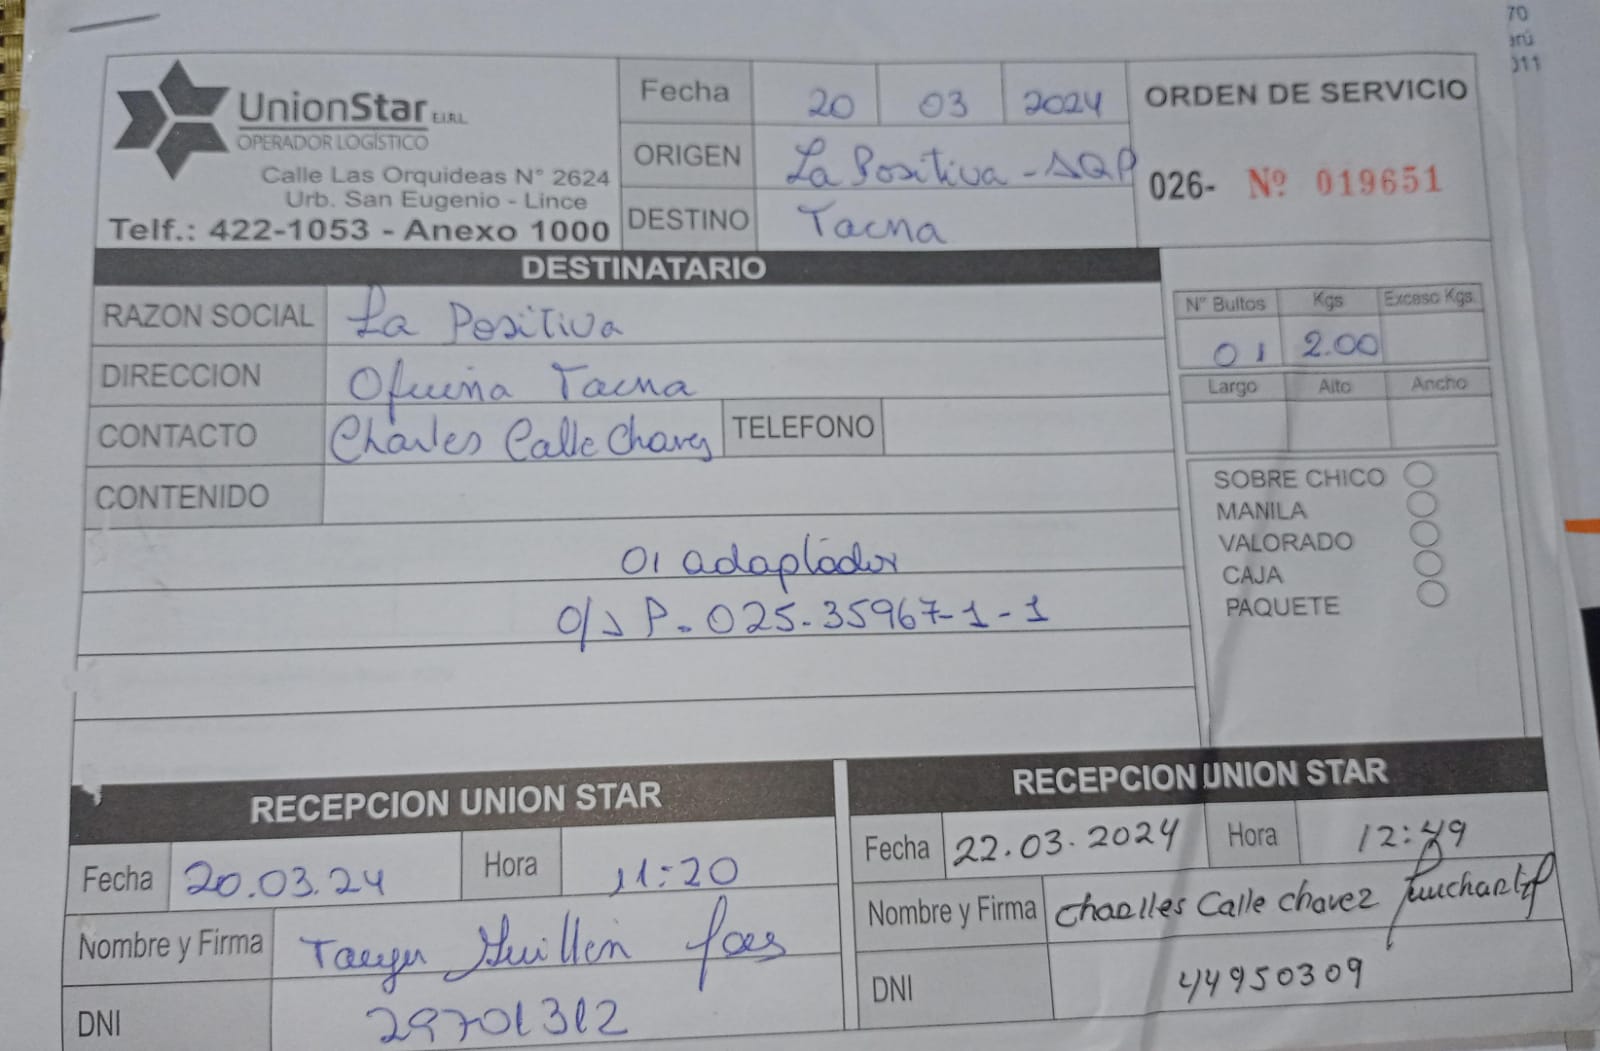 70
erú
011
UnionStar E.I.R.L.
OPERADOR LOGÍSTICO
Calle Las Orquideas N° 2624
Urb. San Eugenio - Lince
Telf.: 422-1053 - Anexo 1000
Fecha 20 03 2024
ORIGEN La Positiva - AQP
DESTINO Tacna
ORDEN DE SERVICIO
026- Nº 019651
DESTINATARIO
RAZON SOCIAL La Positiva
DIRECCION Oficina Tacna
CONTACTO Charles Calle Chavez TELEFONO
CONTENIDO
01 adaptador
O/S P. 025-35967-1-1
N° Bultos Kgs Exceso Kgs.
01 2.00
Largo Alto Ancho
SOBRE CHICO
MANILA
VALORADO
CAJA
PAQUETE
RECEPCION UNION STAR
Fecha 20.03.24 Hora 11:20
Nombre y Firma Guillen
DNI 29701312
RECEPCION UNION STAR
Fecha 22.03.2024 Hora 12:49
Nombre y Firma Charlles Calle Chavez
DNI 44950309